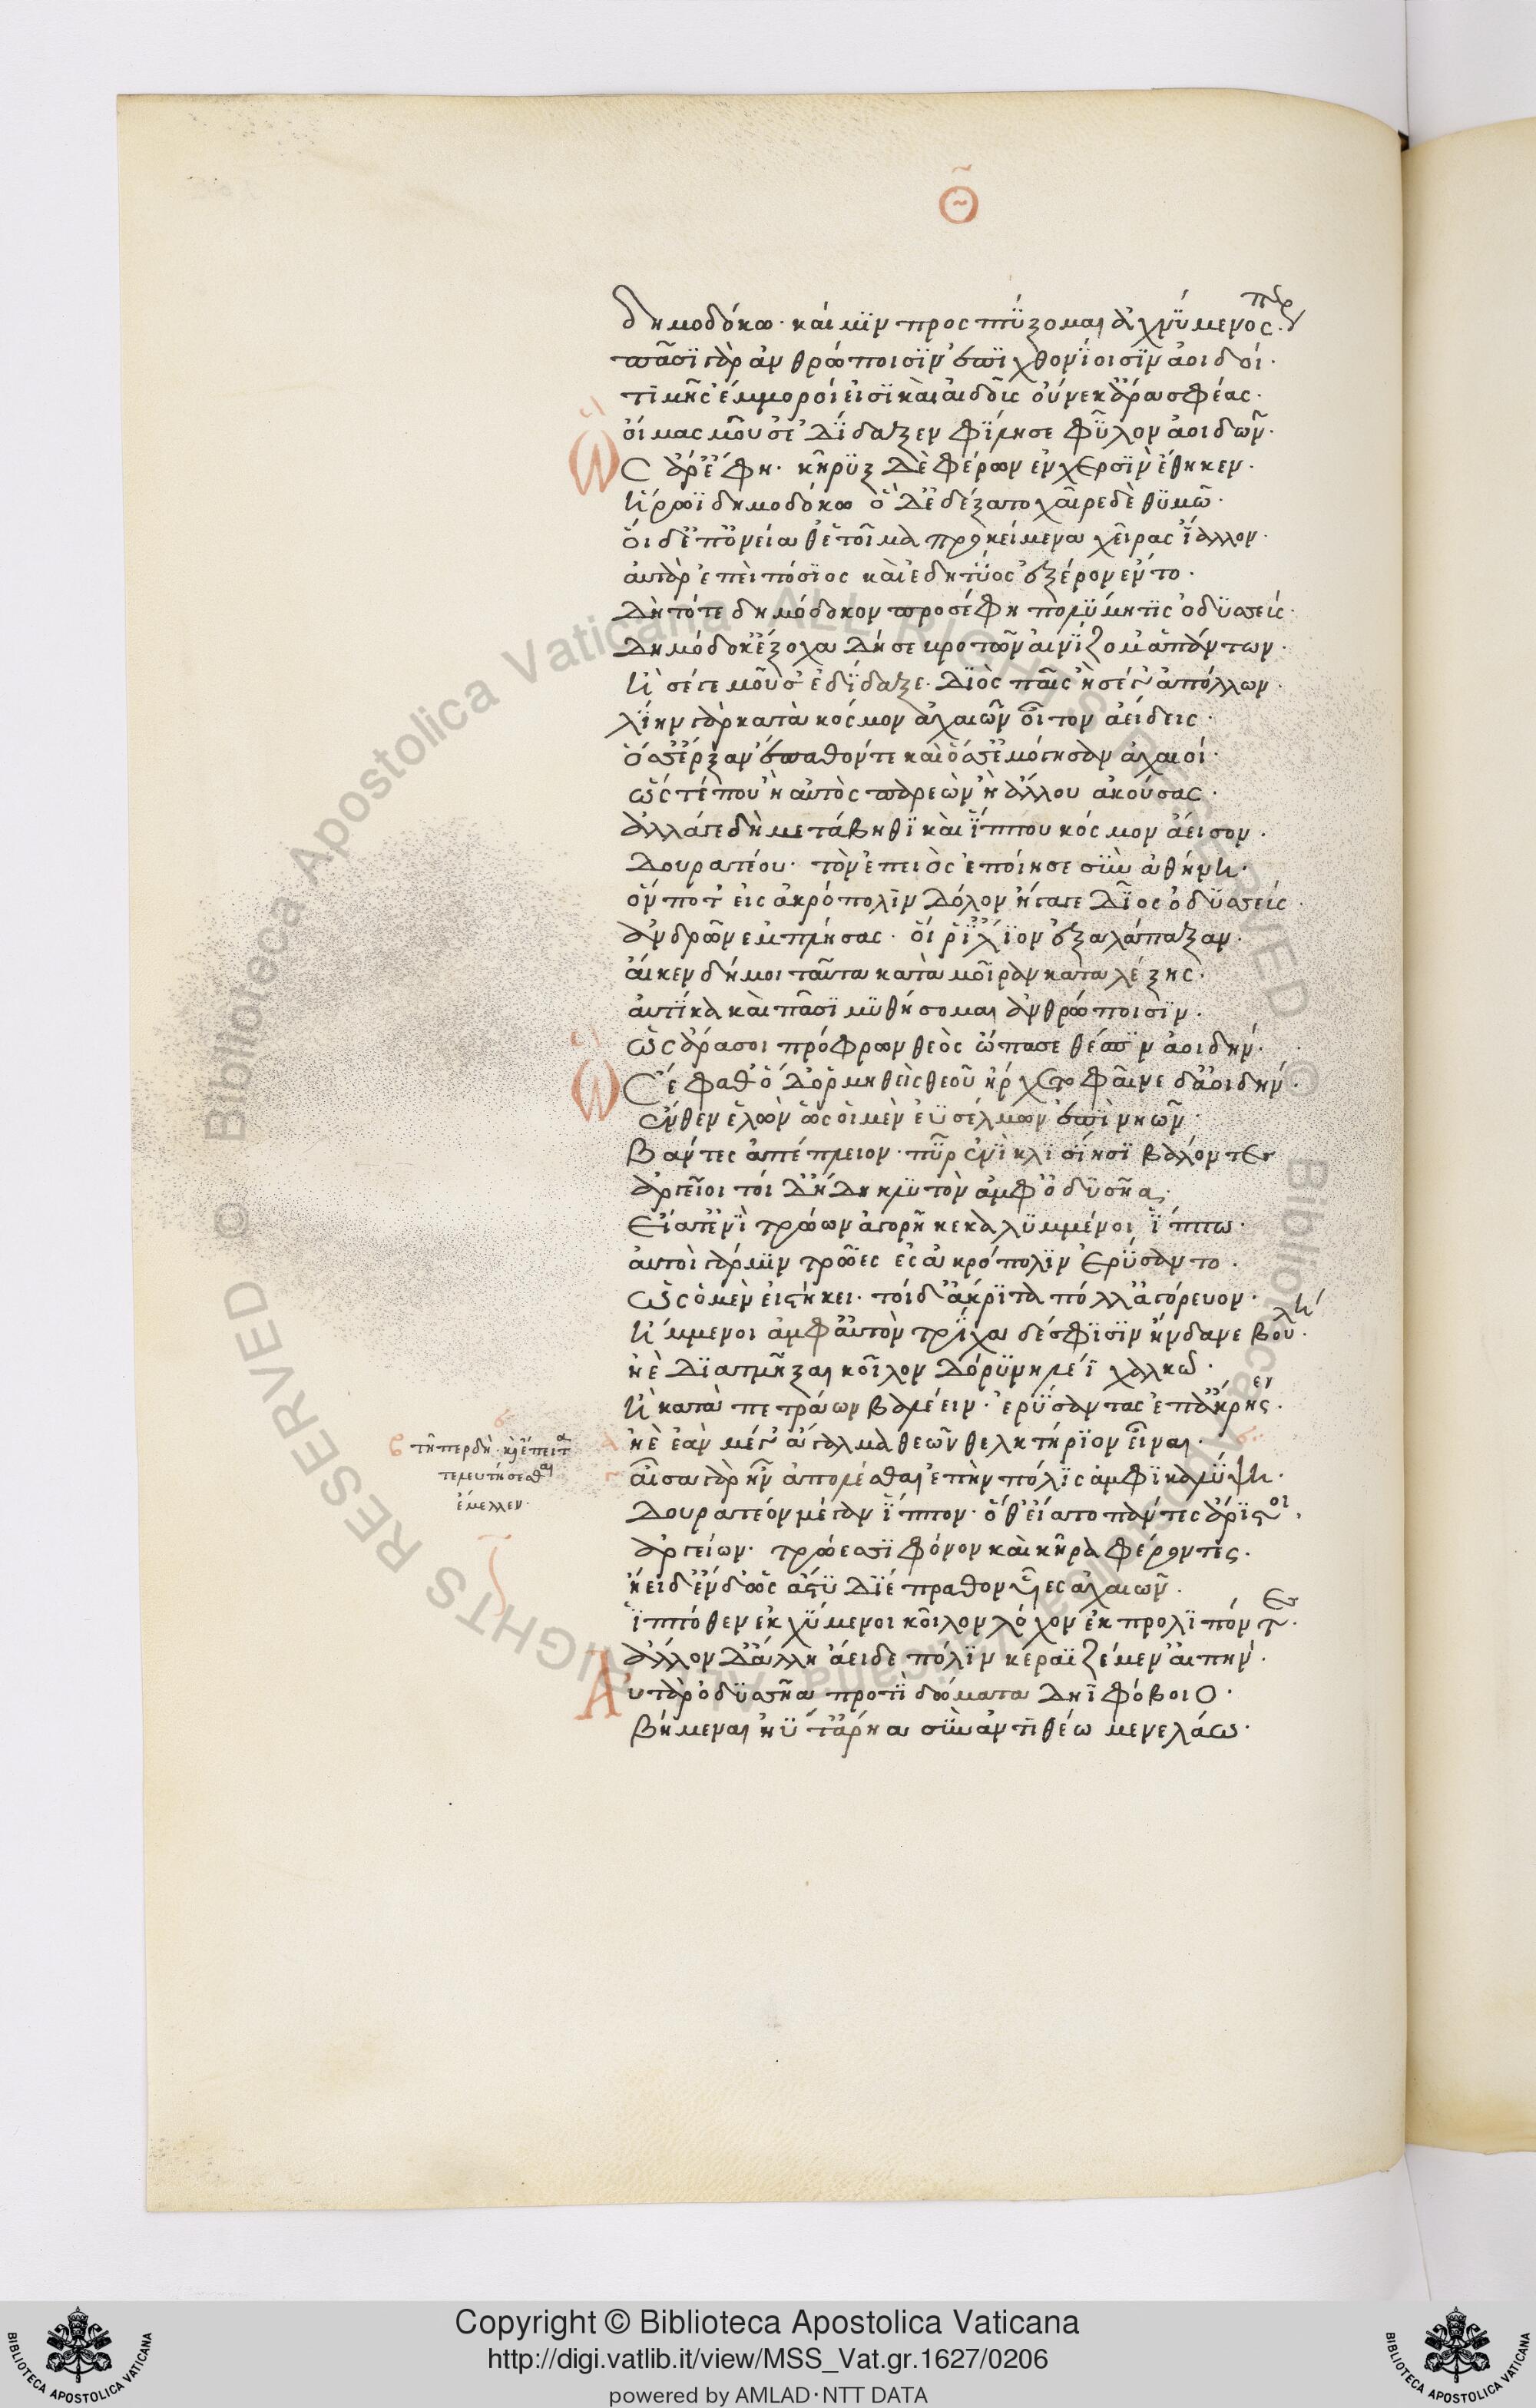 Θ
δημοδόκω· καί μϊν προσπτΰξομαι ἀχνΰμενός περ
πᾶσϊ γὰρ ἀνθρώποισϊν ἐπϊχθονΐοισϊν ἀοιδοί·
τϊμῆς ἔμμοροί εἰσϊ καὶ αἰδοῦς οὕνεκ' ἄρα σφέας·
οἴμας μοῦσ' ἐδΐδαξεν φΐλησε δὲ φῦλον ἀοιδῶν·
Ὣς ἄρ' ἔφη· κῆρϋξ δὲ φέρων ἐν χερσὶν ἔθηκεν·
ἥρωϊ δημοδόκω ὁ δ' ἐδέξατο χαῖρε δὲ θϋμῶ·
οἱ δ' ἐπ' ὀνείαθ' ἑτοῖμα προκείμενα χεῖρας ἴαλλον·
αὐτὰρ ἐπεὶ πόσϊος καὶ ἐδητΰος ἐξ ἔρον ἕντο·
δὴ τότε δημόδοκον προσέφη πολΰμητϊς ὀδϋσσεύς·
δημόδοκ' ἔξοχα δή σε βροτῶν αἰνΐζομ' ἁπάντων·
ἢ σέ γε μοῦσ' ἐδΐδαξε διὸς παῖς ἢ σέ γ' ἀπόλλων·
λΐην γὰρ κατὰ κόσμον ἀχαιῶν οἶτον ἀείδεις·
ὅσσ' ἔρξαν τ' ἔπαθόν τε καὶ ὅσσ' ἐμόγησαν ἀχαιοί·
ὥς τέ που ἢ αὐτὸς παρεὼν ἢ ἄλλου ἀκούσας·
ἀλλ' ἄγε δὴ μετάβηθϊ καὶ ἵππου κόσμον ἄεισον·
δουρατέου· τὸν ἐπειὸς ἐποίησε σὺν ἀθήνη·
ὅν ποτ' εἰς ἀκρόπολϊν δόλον ἤγαγε δῖος ὀδϋσσεύς·
ἀνδρῶν ἐμπλήσας· οἵ ῥ' ἴλϊον ἐξαλάπαξαν·
αἴ κεν δή μοι ταῦτα κατὰ μοῖραν καταλέξης·
αὐτΐκα καὶ πᾶσϊ μϋθήσομαι ἀνθρώποισϊν·
ὡς ἄρα σοι πρόφρων θεὸς ὤπασε θέσπϊν ἀοιδήν·
Ὣς φάθ' ὁ δ' ὁρμηθεὶς θεοῦ ἤρχετο φαῖνε δ' ἀοιδήν·
ἔνθεν ἑλὼν ὡς οἱ μὲν ἐϋσέλμων ἐπὶ νηῶν·
βάντες ἀπέπλειον· πῦρ ἐν κλισΐησϊ βαλόντες
ἀργεῖοι τοὶ δ' ἤδη κλϋτὸν ἀμφ' ὀδϋσῆα·
εἵατ' ἐνὶ τρώων ἀγορῆ κεκαλϋμμένοι ἵππω·
αὐτοὶ γάρ μϊν τρῶες ἐς ἀκρόπολϊν ἐρΰσαντο·
ὣς ὁ μὲν εἱστήκει· τοὶ δ' ἄκρϊτα πόλλ' ἀγόρευον·
ἥμμενοι ἀμφ' αὐτὸν τρΐχα δέ σφϊσϊν ἥνδανε βουλή·
ἠὲ διατμῆξαι κοῖλον δόρϋ νηλέϊ χαλκῶ·
ἢ κατὰ πετράων βαλέειν· ἐρΰσαντας ἐπ' ἄκρης·
ἠὲ ἐᾶν μέγ' ἄγαλμα θεῶν θελκτήρϊον εἶναι·
αἶσα γὰρ ἦν ἀπολέσθαι ἐπὴν πόλϊς ἀμφϊκαλΰψη·
δουράτεον μέγαν ἵππον· ὅθ' εἵατο πάντες ἄρϊστοι·
ἀργείων· τρώεσσϊ φόνον καὶ κῆρα φέροντες·
ἤειδεν δ' ὡς ἄστϋ διέπραθον υἷες ἀχαιῶν·
ἱππόθεν ἐκχΰμενοι κοῖλον λόχον ἐκπρολϊπόντες·
ἄλλον δ' ἄλλη ἄειδε πόλϊν κεραϊζέμεν αἰπήν·
Αὐτὰρ ὀδϋσσῆα προτὶ δώματα δηϊφόβοιο·
βήμεναι ἠΰτ' ἄρηα σὺν ἀντιθέω μενελάω·
τῆπερ δὴ καὶ ἔπειτα
τελευτήσεσθαι
ἔμελλεν·
© Biblioteca Apostolica Vaticana ALL RIGHTS RESERVED © Biblioteca Apostolica Vaticana ALL RIGHTS RESERVED
Copyright © Biblioteca Apostolica Vaticana
http://digi.vatlib.it/view/MSS_Vat.gr.1627/0206
powered by AMLAD·NTT DATA
BIBLIOTECA APOSTOLICA VATICANA
BIBLIOTECA APOSTOLICA VATICANA